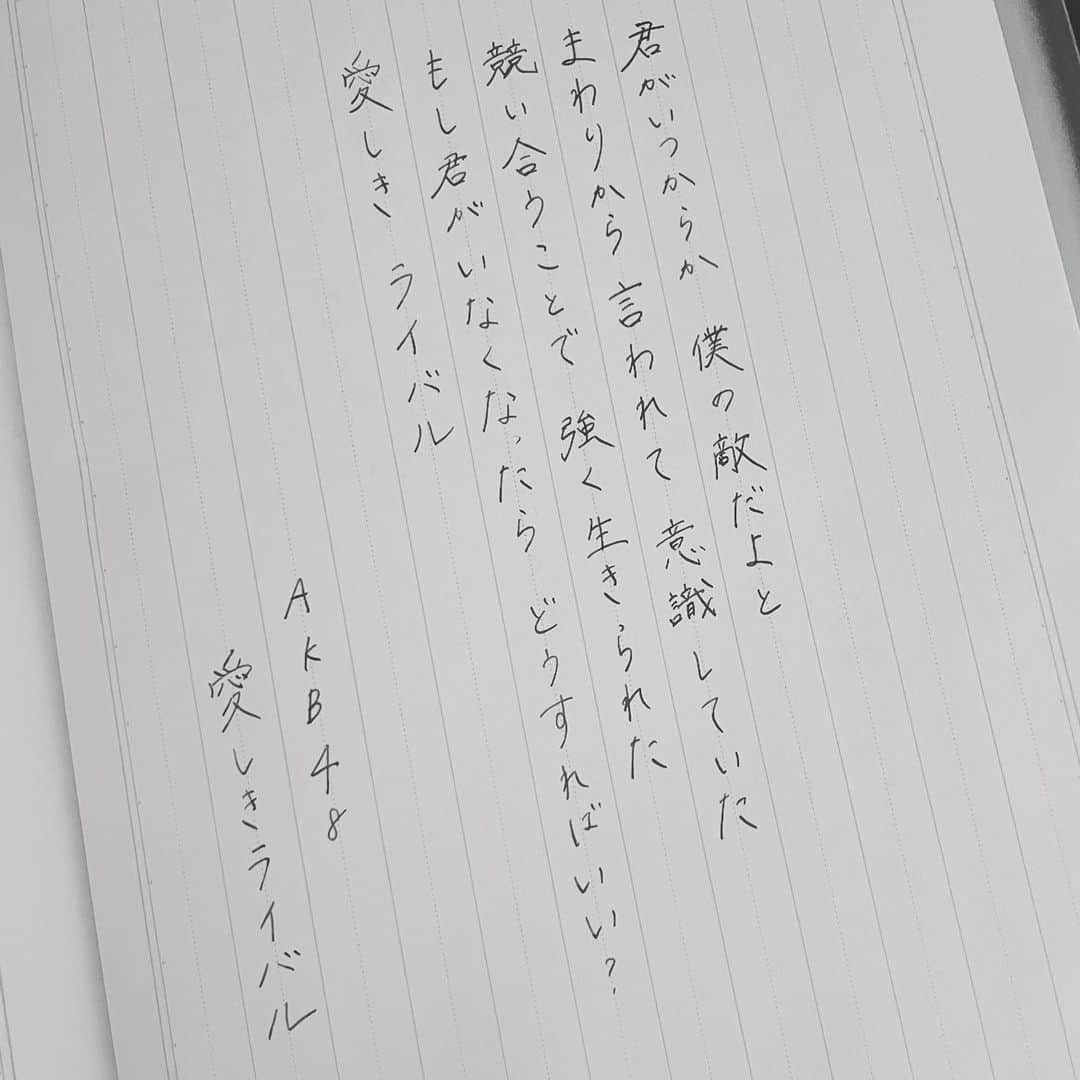 君がいつからか 僕の敵だよと
まわりから 言われて 意識していた
競い合うことで 強く生きられた
もし君がいなくなったら どうすればいい?
愛しき ライバル
AKB48
愛しきライバル